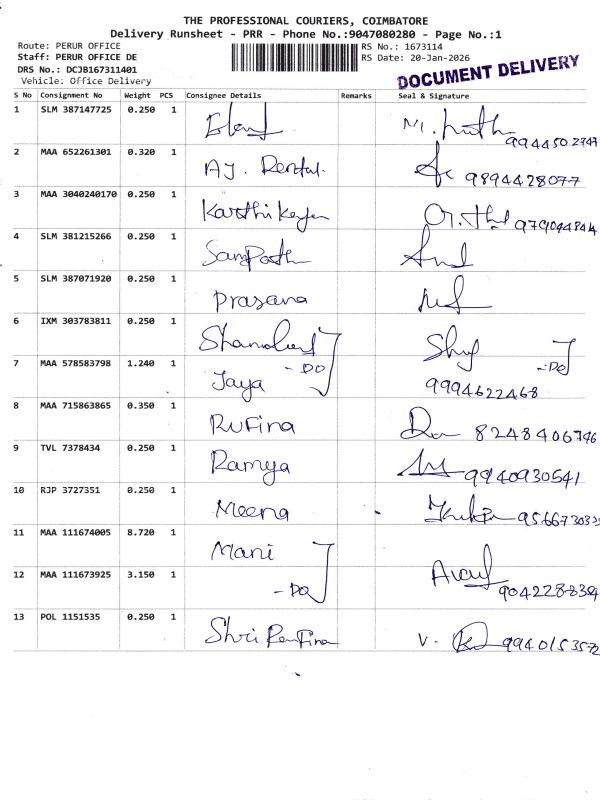 THE PROFESSIONAL COURIERS, COIMBATORE
Delivery Runsheet - PRR - Phone No.:9047080280 - Page No.:1
Route: PERUR OFFICE RS No.: 1673114
Staff: PERUR OFFICE DE RS Date: 20-Jan-2026
DRS No.: DCJB167311401
Vehicle: Office Delivery
DOCUMENT DELIVERY
S No Consignment No Weight PCS Consignee Details Remarks Seal & Signature
1 SLM 387147725 0.250 1
2 MAA 652261301 0.320 1 AJ. Rental. 9894428077
3 MAA 3040240170 0.250 1 Karthikeyan
4 SLM 381215266 0.250 1 Sampath
5 SLM 387071920 0.250 1 Prasana
6 IXM 303783811 0.250 1
7 MAA 578583798 1.240 1 Jaya - DO 9994622468 - DO
8 MAA 715863865 0.350 1 Rufina 8248406746
9 TVL 7378434 0.250 1 Ramya 9940930541
10 RJP 3727351 0.250 1 Meena
11 MAA 111674005 8.720 1 Mani
12 MAA 111673925 3.150 1 - DO
13 POL 1151535 0.250 1 V. 9940153572